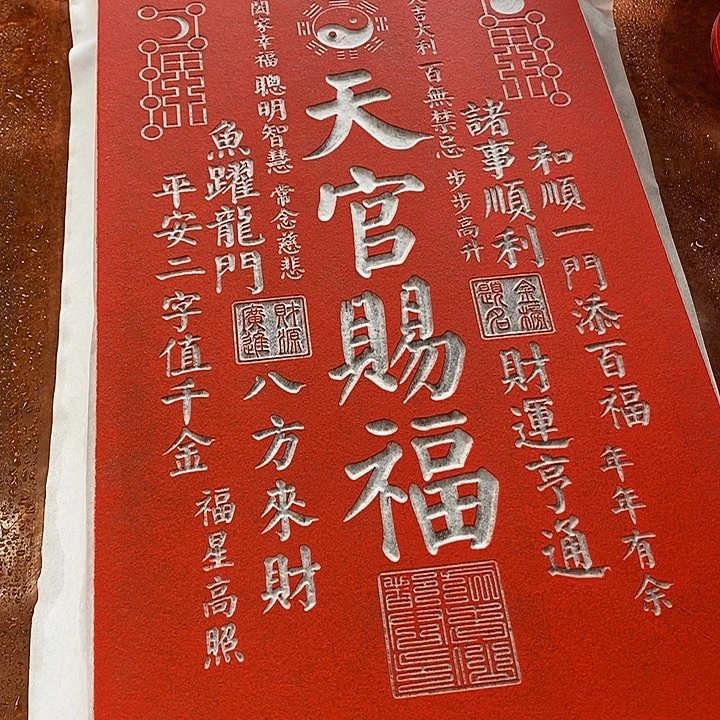 和順一門添百福
年年有余
諸事順利
金榜題名
財運亨通
大吉大利
百無禁忌
步步高升
天官賜福
閤家幸福
聰明智慧
常念慈悲
魚躍龍門
財源廣進
八方來財
平安二字值千金
福星高照